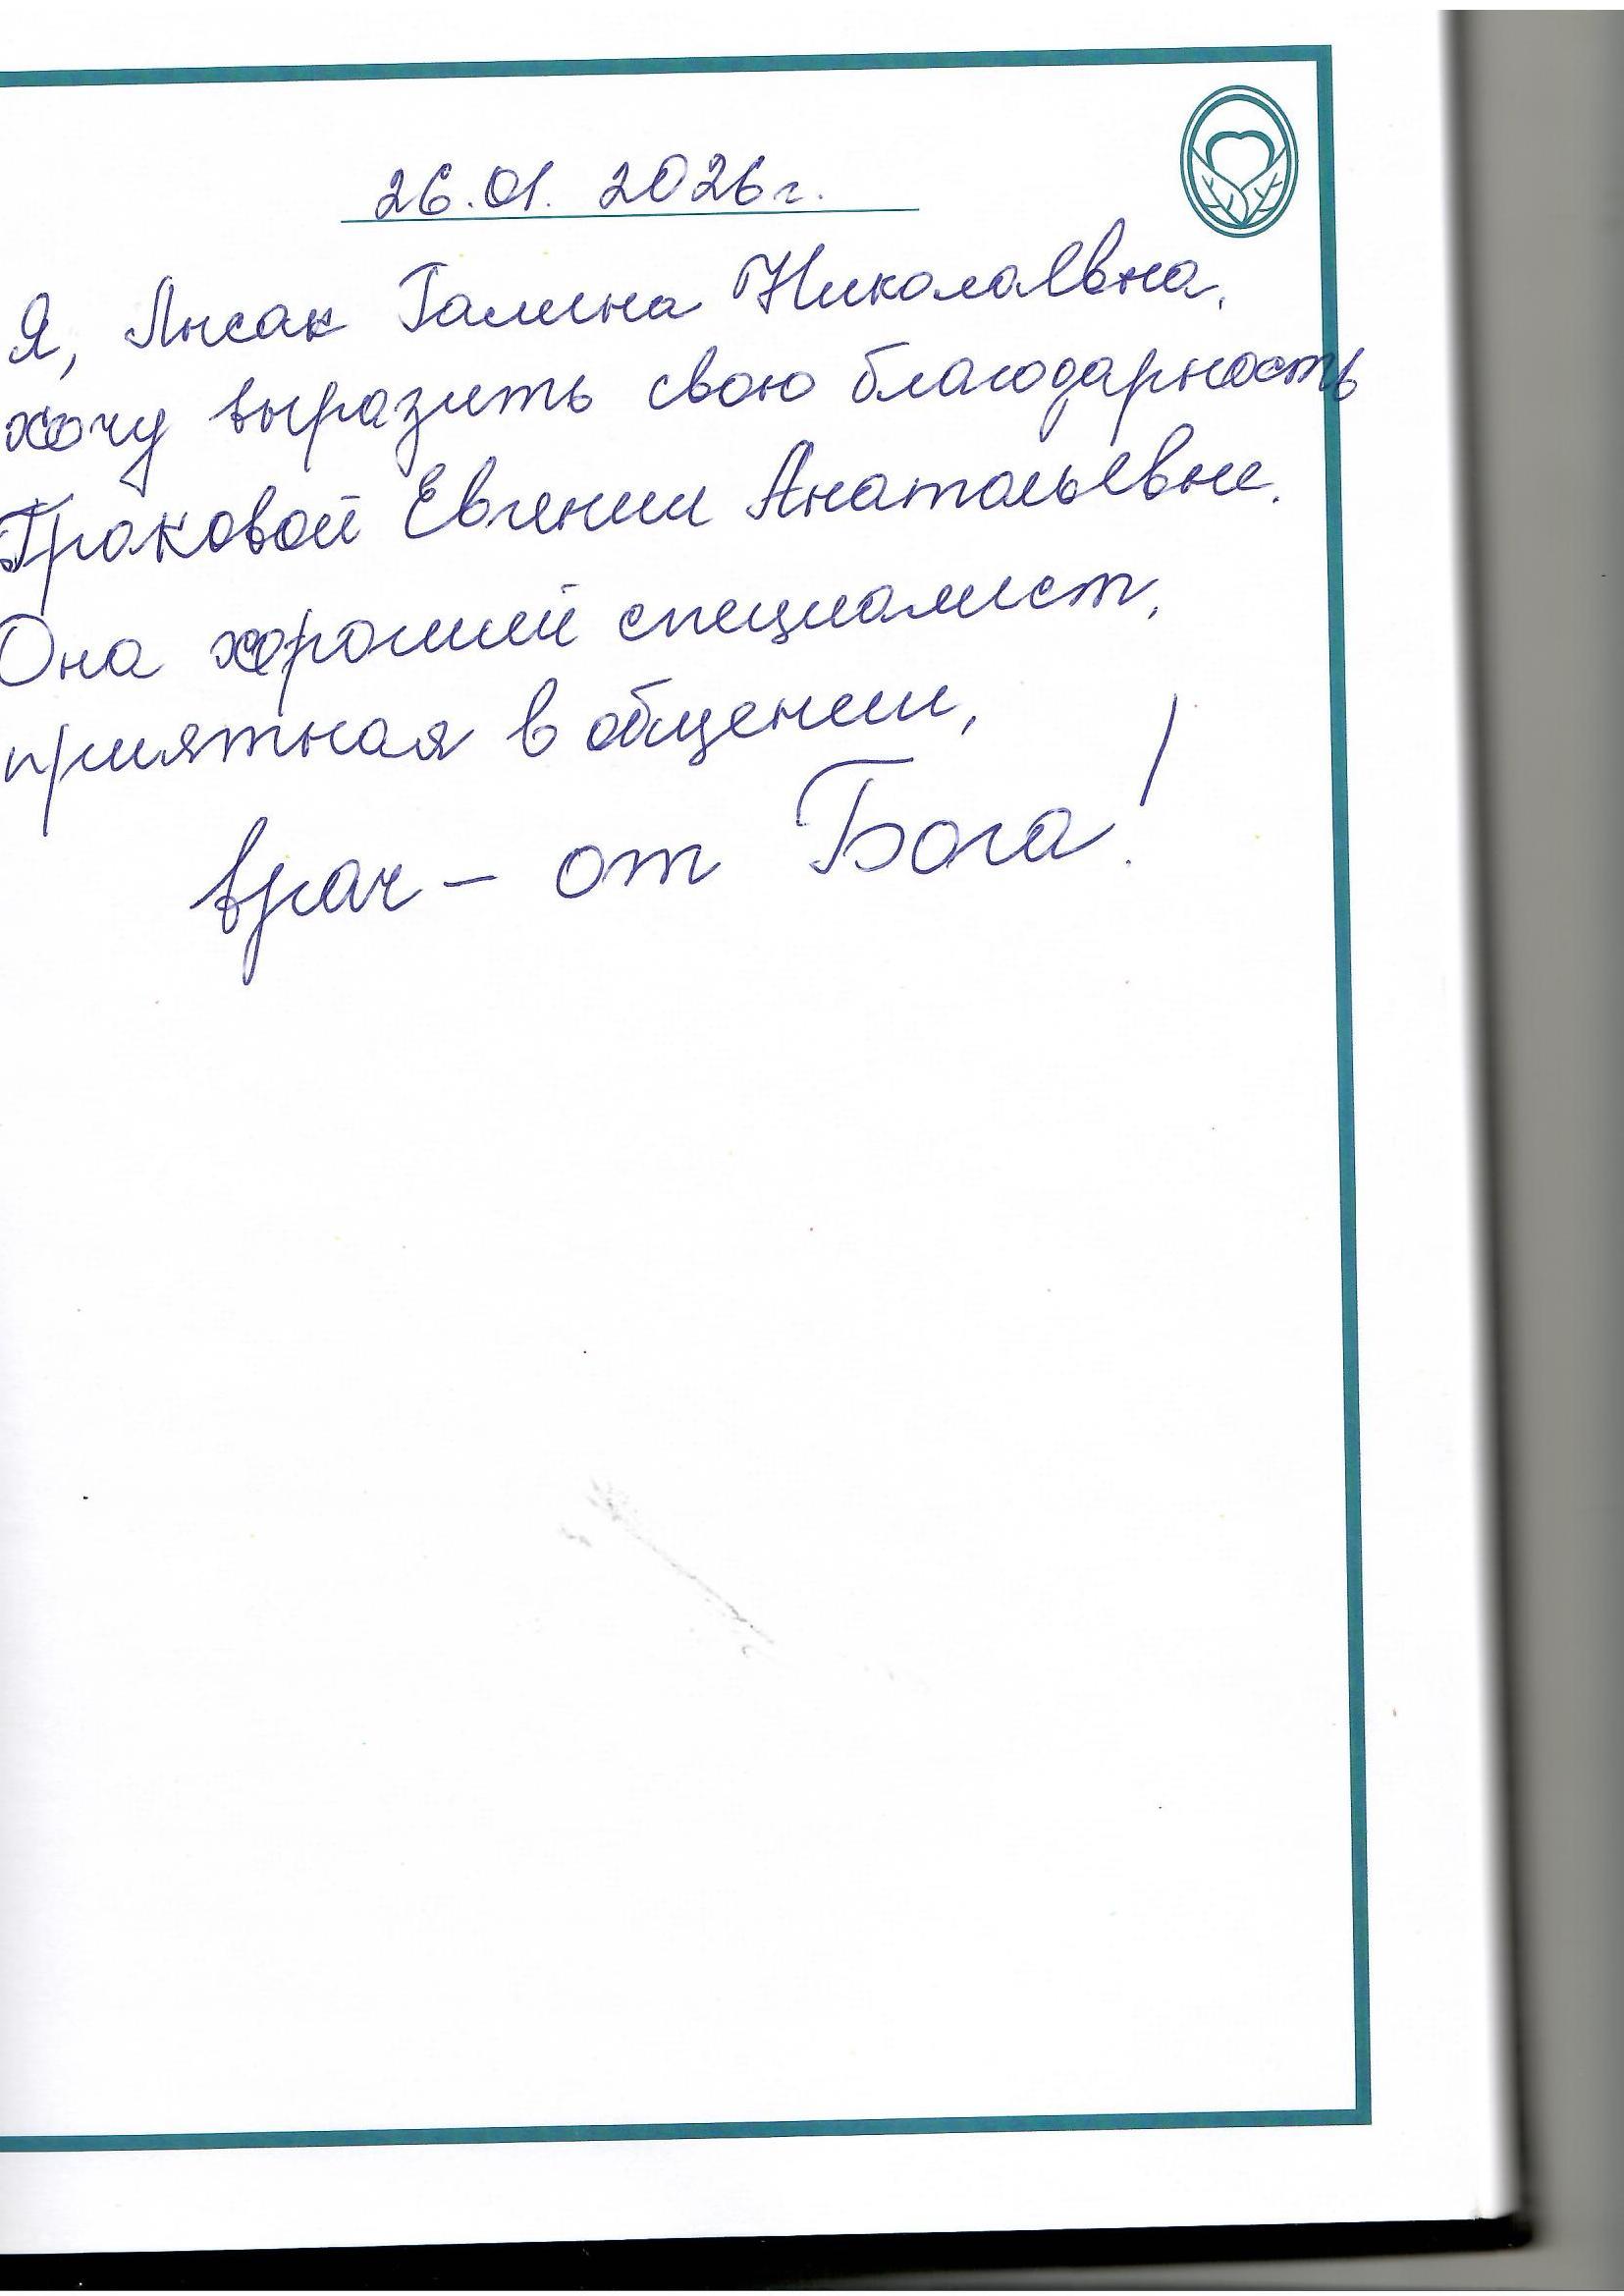 26.01.2026г.
Я, Лысак Галина Николаевна,
хочу выразить свою благодарность
Граковой Евгении Анатольевне.
Она хороший специалист,
приятная в общении,
врач - от Бога!